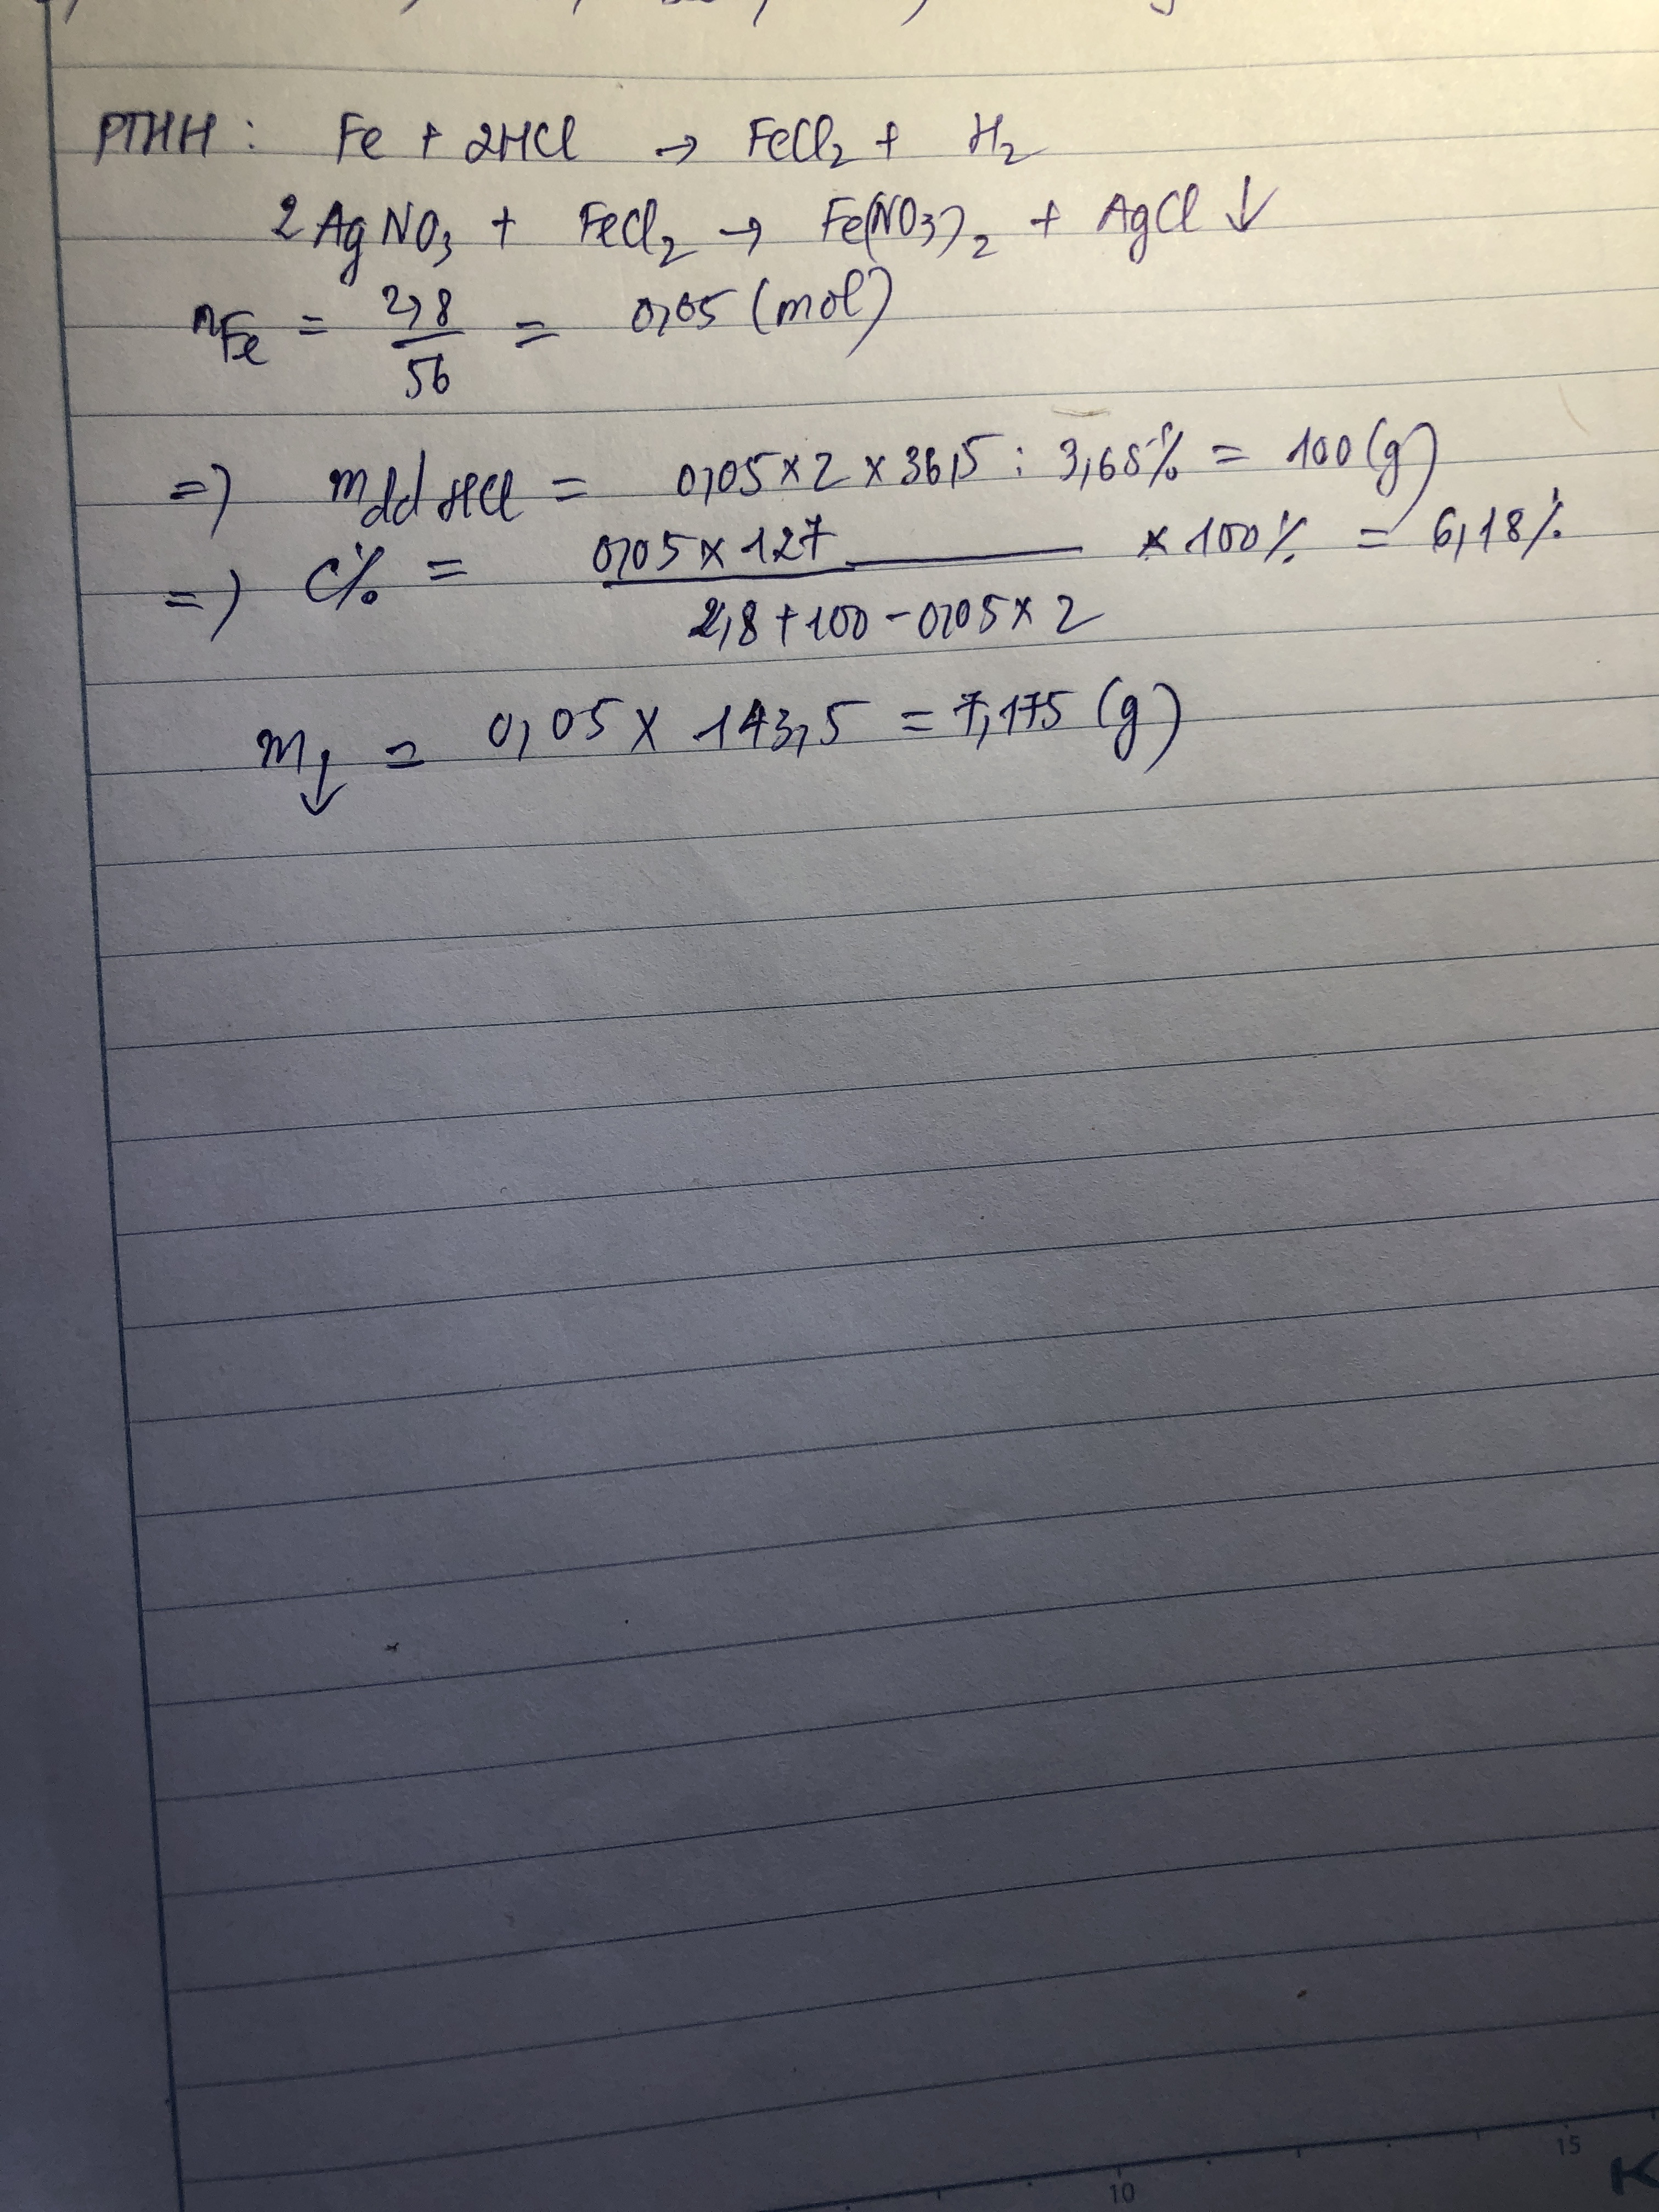 PTHH : Fe + 2HCl → FeCl₂ + H₂
2AgNO₃ + FeCl₂ → Fe(NO₃)₂ + AgCl ↓
nFe = 2,8 / 56 = 0,05 (mol)
=) mdd HCl = 0,05 × 2 × 36,5 : 3,65% = 100 (g)
=) C% = 0,05 × 127 / 2,8 + 100 - 0,05 × 2 × 100% = 6,18%
m↓ = 0,05 × 143,5 = 7,175 (g)
10
15
K